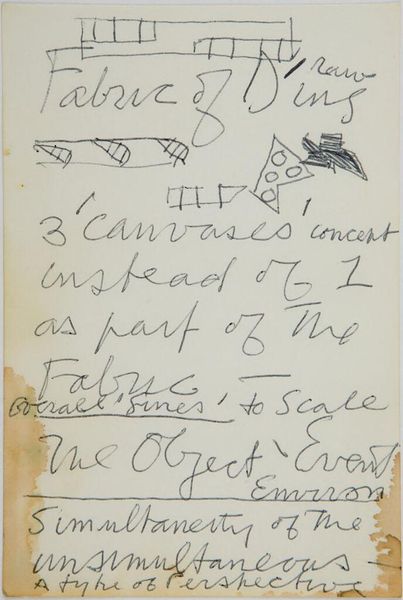 Fabric of D'ing
raw
3 'canvases' concept
instead of 1
as part of The
Fabric —
Overall 'Sines' to Scale
The Object 'Event
Environ
Simultaneity of The
unsimultaneous —
A type of Perspective